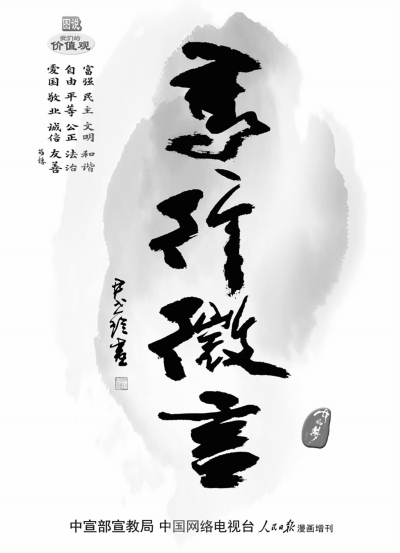 图说
我们的
价值观
富强 民主 文明 和谐
自由 平等 公正 法治
爱国 敬业 诚信 友善
行微言
中国梦
中宣部宣教局 中国网络电视台 人民日报 漫画增刊